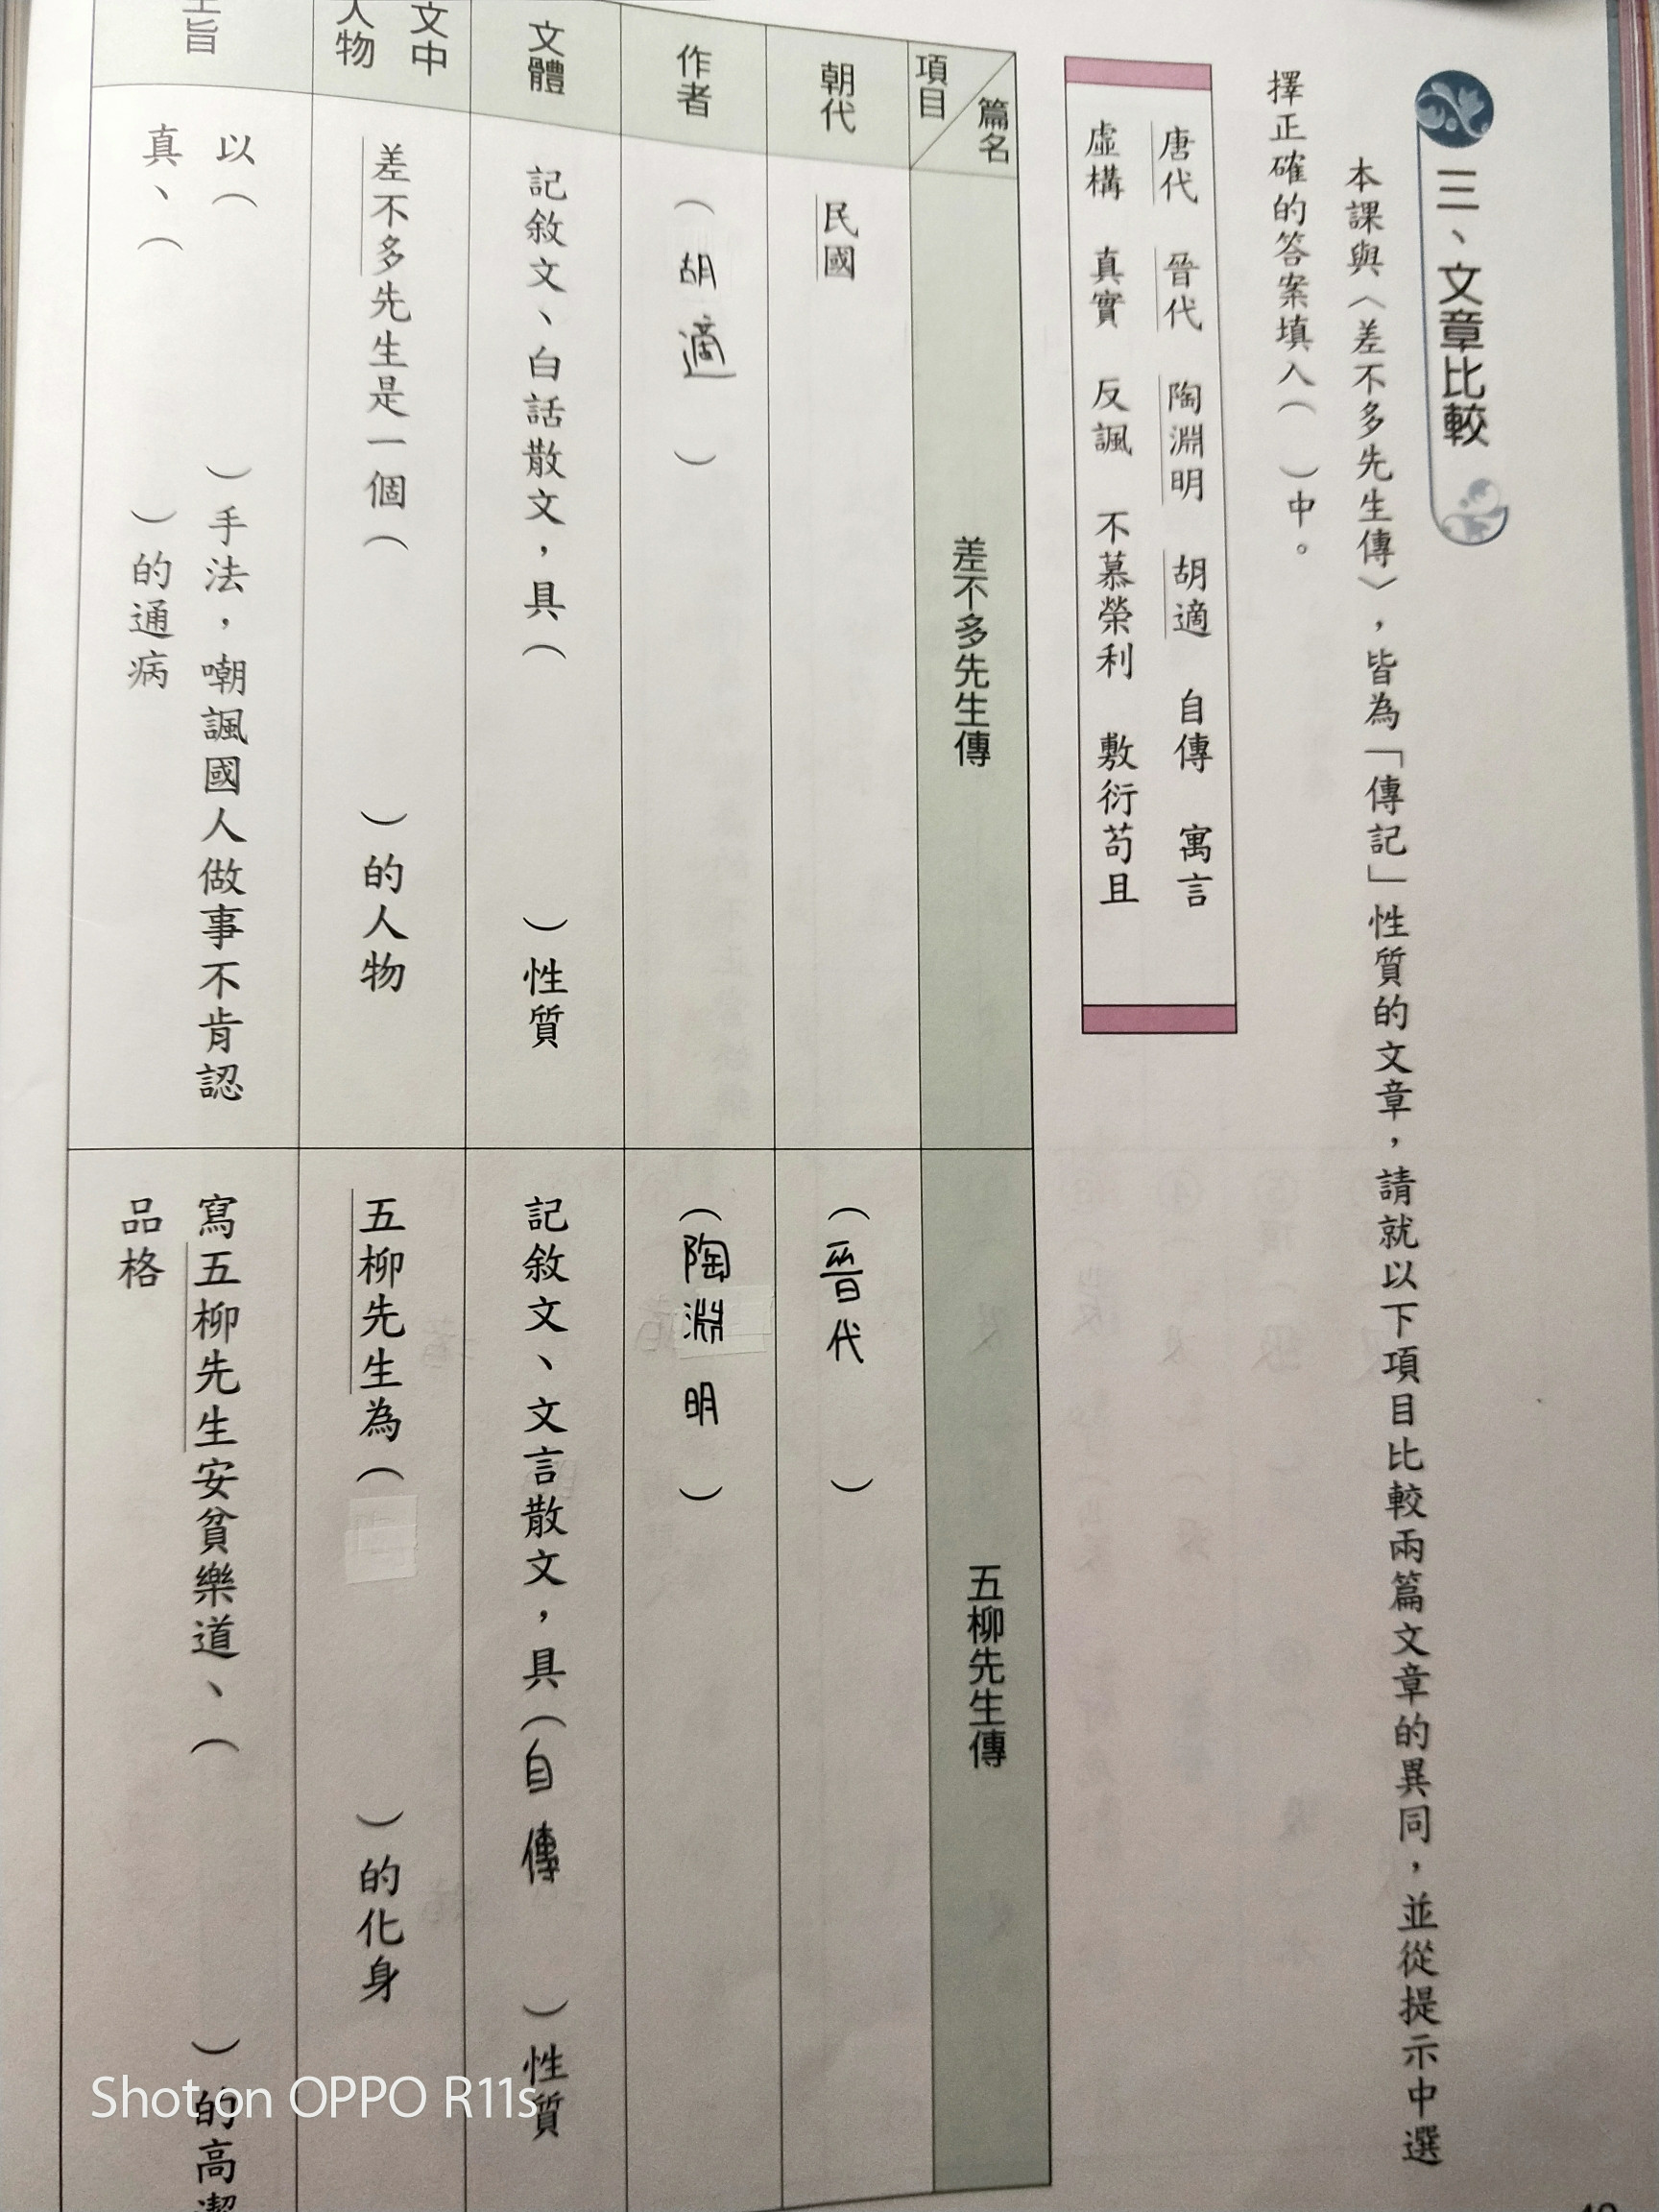 三、文章比較
本課與〈差不多先生傳〉，皆為「傳記」性質的文章，請就以下項目比較兩篇文章的異同，並從提示中選
擇正確的答案填入（　）中。
唐代　晉代　陶淵明　胡適　自傳　寓言
虛構　真實　反諷　不慕榮利　敷衍苟且
篇名
項目
差不多先生傳
五柳先生傳
朝代
民國
（晉代　）
作者
（胡適　）
（陶淵明　）
文體
記敘文、白話散文，具（　）性質
記敘文、文言散文，具（自傳　）性質
文中
人物
差不多先生是一個（　）的人物
五柳先生為（　）的化身
主旨
以（　）手法，嘲諷國人做事不肯認
真、（　）的通病
寫五柳先生安貧樂道、（　）的高潔
品格
Shot on OPPO R11s